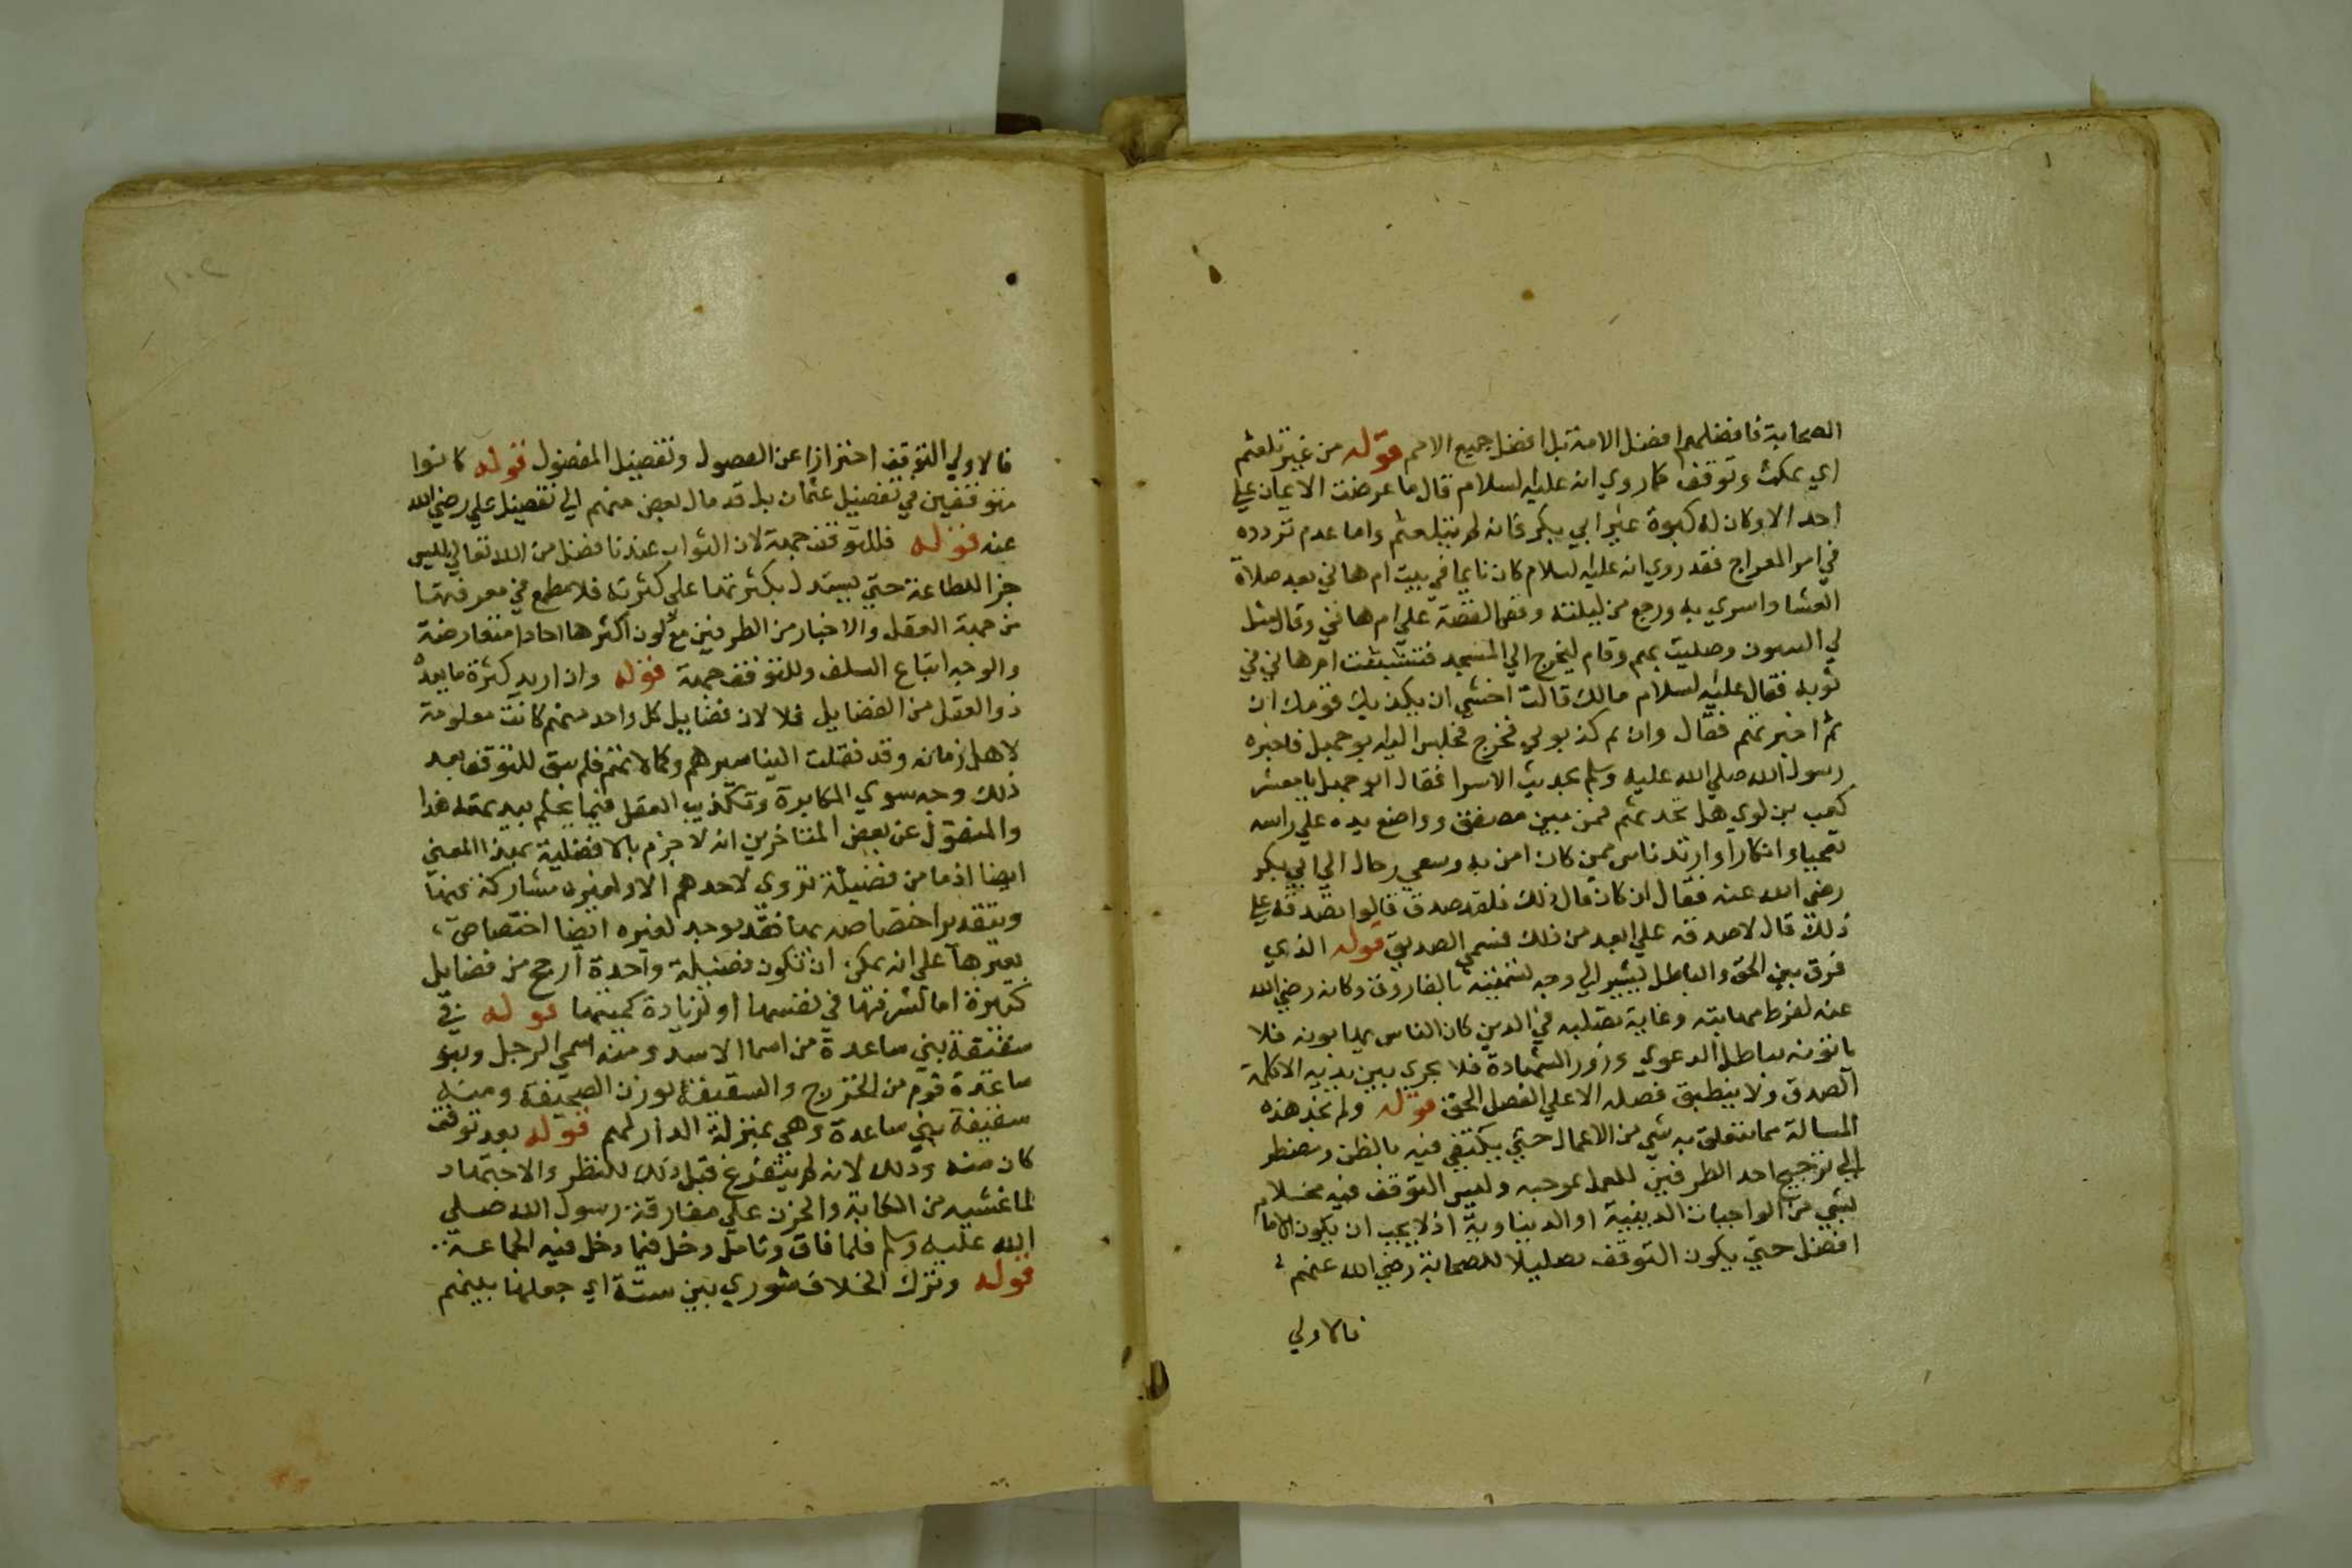 الصحابة فافضلهم افضل الامة بل افضل جميع الامم قوله من غير تلعثم
اي يمكث وتوقف كما روي انه عليه السلام قال ما عرضت الايمان علي
احد الا وكان له كبوة غير ابي بكر فانه لم يتلعثم واما عدم تردده
في امر المعراج فقد روي انه عليه السلام كان نايما في بيت ام هاني بعد صلاة
العشا واسري به ورجع من ليلته وقص القصة علي ام هاني وقال مثل
لي النبيون وصليت بهم وقام ليخرج الي المسجد فتشبثت ام هاني في
ثوبه فقال عليه السلام مالك قالت اخشي ان يكذبك قومك ان
ثم اخبرتهم فقال وان كذبوني فخرج فجلس اليه ابو جهل فاخبره
رسول الله صلي الله عليه وسلم بحديث الاسرا فقال ابو جهل يا معشر
كعب بن لوي هل تحدثتم فمن بين مصفق وواضع يده علي راسه
تعجبا وانكارا وارتد ناس ممن كان امن به وسعي رجال الي ابي بكر
رضي الله عنه فقال ان كان قال ذلك فلقد صدق قالوا تصدقه علي
ذلك قال لاصدقه علي ابعد من ذلك فسمي الصديق قوله الذي
فرق بين الحق والباطل يشير الي وجه تسميته بالفاروق وكان رضي الله
عنه لفرط مهابته وغاية تصلبه في الدين كان الناس يهابونه فلا
ياتونه بباطل الدعوي وزور الشهادة فلا يجري بين يديه الا كلمة
الصدق ولا ينطبق فصله الا علي الفصل الحق قوله ولم نجد هذه
المسالة مما يتعلق به شي من الاعمال حتي يكتفي فيه بالظن ونضطر
الي ترجيح احد الطرفين للعمل بموجبه وليس التوقف فيه مخلا
بشي من الواجبات الدينية او الدنياوية اذ لا يجب ان يكون الامام
افضل حتي يكون التوقف تضليلا للصحابة رضي الله عنهم
فالاولي
١٠٢
فالاولي التوقف احترازا عن الفصول وتفضيل المفضول قوله كانوا
متوقفين في تفضيل عثمان بل قد مال بعض منهم الي تفضيل علي رضي الله
عنه قوله فللتوقف جهة لان الثواب عندنا فضل من الله تعالي ليس
جزا للطاعة حتي يستدل بكثرتها علي كثرته فلا مطمع في معرفتها
من جهة العقل والاخبار من الطرفين مع كون اكثرها احادا متعارضة
والوجه اتباع السلف وللتوقف جهة قوله وان اريد كثرة ما يعده
ذوا العقل من الفضايل فلا لان فضايل كل واحد منهم كانت معلومة
لاهل زمانه وقد نقلت الينا سيرهم وكمالاتهم فلم يبق للتوقف بعد
ذلك وجه سوي المكابرة وتكذيب العقل فيما يحكم ببديهته هذا
والمنقول عن بعض المتاخرين انه لا جزم بالافضلية بهذا المعني
ايضا اذ ما من فضيلة تروي لاحدهم الا ولغيره مشاركة فيها
وبتقدير اختصاصه بها فقد يوجد لغيره ايضا اختصاص
بغيرها علي انه يمكن ان تكون فضيلة واحدة ارجح من فضايل
كثيرة اما لشرفها في نفسها او لزيادة كميتها قوله في
سقيفة بني ساعدة من اسما الاسد ومنه اسمي الرجل وبنو
ساعدة قوم من الخزرج والسقيفة بوزن الصحيفة ومنه
سقيفة بني ساعدة وهي بمنزلة الدار لهم قوله بعد توقف
كان منه وذلك لانه لم يتفرغ قبل ذلك للنظر والاجتهاد
لما غشيه من الكابة والحزن علي مفارقة رسول الله صلي
الله عليه وسلم فلما فاق وتامل دخل فيما دخل فيه الجماعة
قوله وترك الخلاف شوري بين ستة اي جعلها بينهم